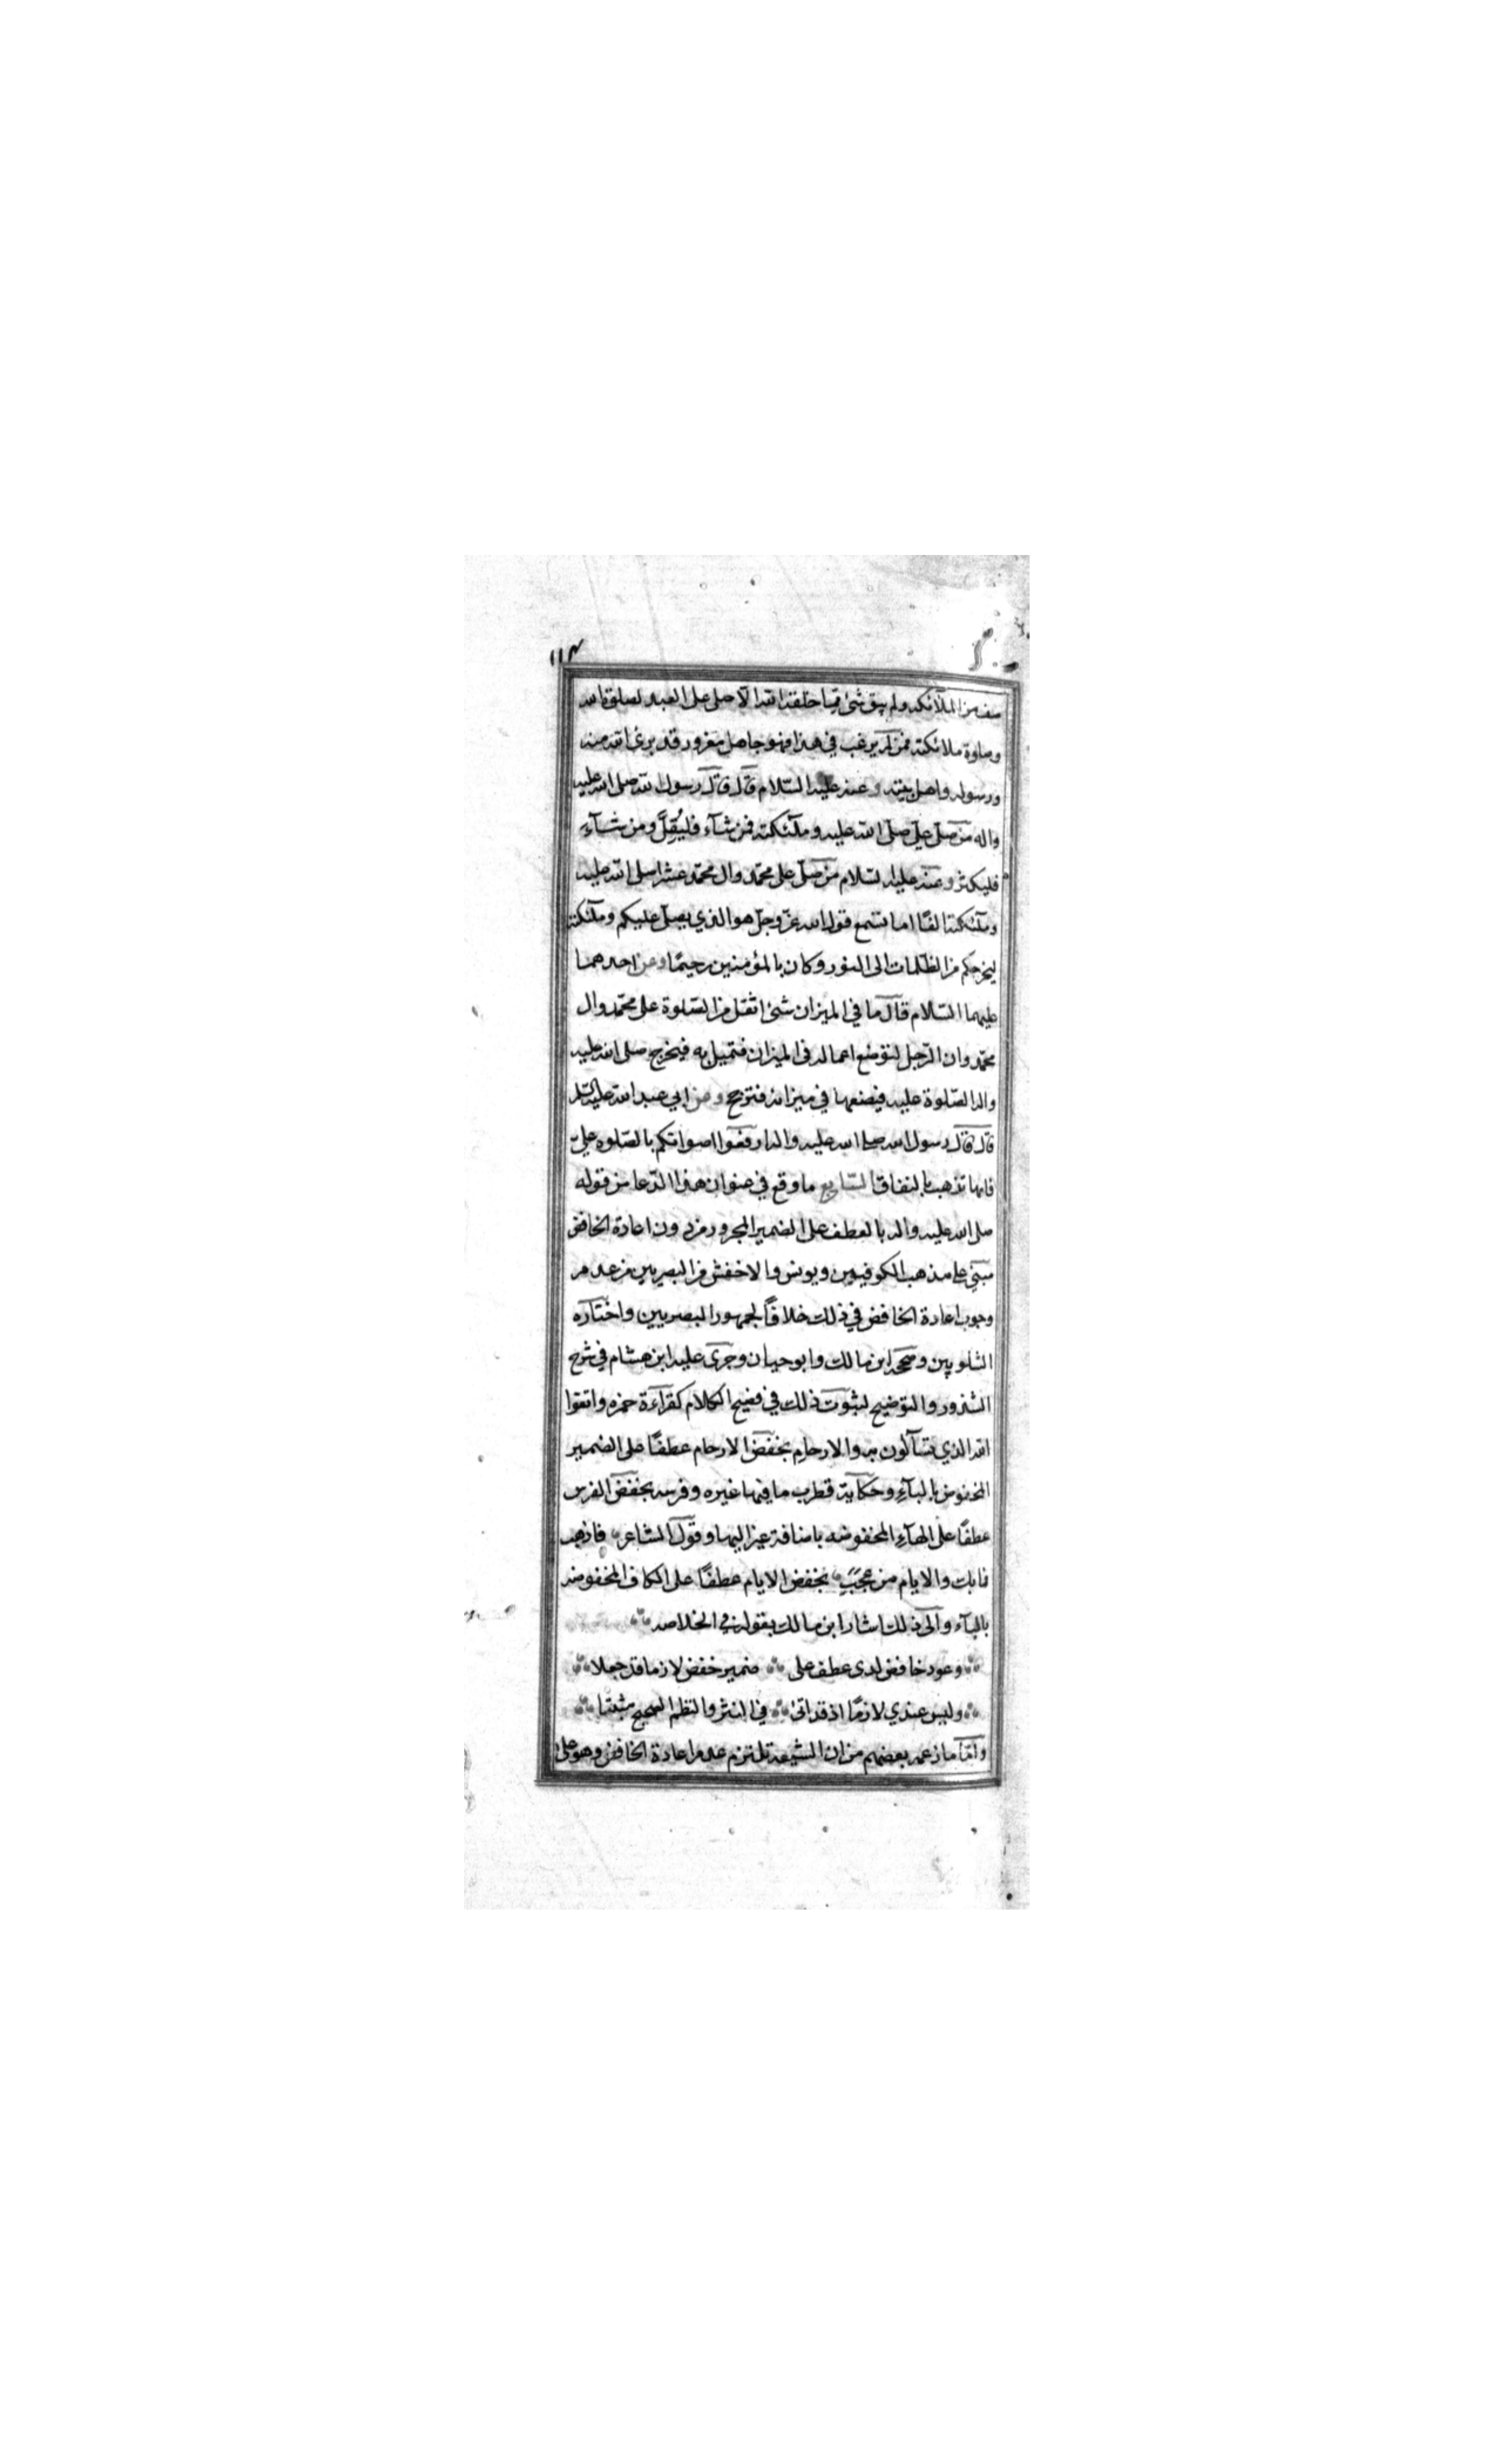 ١١٣
صف من الملآئكه ولم يبق شئ ممّا خلقه الله الّا صلى على العبد لصلوة الله
وصلوة ملائكته فمن لم يرغب في هذا فهو جاهل مغرور قد برئ الله منه
ورسوله واهل بيته وعنه عليه السّلام قال قال رسول الله صلى الله عليه
واله من صلّى علىّ صلّى الله عليه وملآئكته فمن شآء فليُقِلّ ومن شآء
فليكثر وعنه عليه السّلام من صلّى على محمّد وال محمّد عشرا صلى الله عليه
وملآئكته الفًا اما تسمع قول الله عزّ وجلّ هو الذي يصلّى عليكم وملآئكته
ليخرجكم من الظلمات الى النور وكان بالمؤمنين رحيمًا وعن احدهما
عليهما السّلام قال ما في الميزان شئ اثقل من الصّلوة على محمّد وال
محمّد وان الرّجل لتوضع اعماله في الميزان فتميل به فيخرج صلى الله عليه
واله الصّلوة عليه فيضعها في ميزانه فترجح وعن ابي عبد الله عليه السّلم
قال قال رسول الله صلى الله عليه واله ارفعوا اصواتكم بالصّلوه علىّ
فانها تذهب بالنفاق السّابع ما وقع في عنوان هذا الدّعا من قوله
صلى الله عليه واله بالعطف على الضمير المجرور من دون اعادة الخافض
مبنّي على مذهب الكوفيين ويونس والاخفش من البصريين من عدم
وجوب اعادة الخافض في ذلك خلافاً لجمهور البصريين واختاره
الشلوبين وصحّحه ابن مالك وابو حيان وجرى عليه ابن هشام في شرح
الشذور والتوضيح لثبوت ذلك في فصيح الكلام كقراءة حمزه واتقوا
الله الذي تسآلون به والارحامِ بخفض الارحام عطفًا على الضمير
المخفوض بالبآء وحكاية قطرب ما فيها غيره وفرسه بخفض الفرس
عطفًا على الهآء المخفوضه باضافة غير اليها وقول الشاعر فاذهب
فما بك والايام من عجبٍ بخفض الايام عطفًا على الكاف المخفوضه
بالبآء والى ذلك اشار ابن مالك بقوله في الخلاصه
وعود خافض لدى عطف على ضمير خفض لازما قد جعلا
وليس عندي لازمًا اذ قد اتى في النثر والنظم الصحيح مثبتا
وامّا ما زعمه بعضهم من ان الشيعه تلتزم عدم اعادة الخافض وهو على